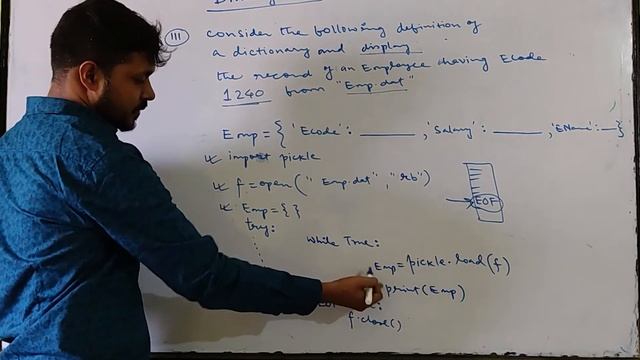 III consider the following definition of
a dictionary and display
the record of an Employee having Ecode
1240 from "Emp.dat"
Emp = { 'Ecode': ______ , 'Salary': ______ , 'EName': __ }
import pickle
f = open("Emp.dat", "rb")
Emp = { }
try:
while True:
Emp = pickle.load(f)
print(Emp)
f.close()
EOF